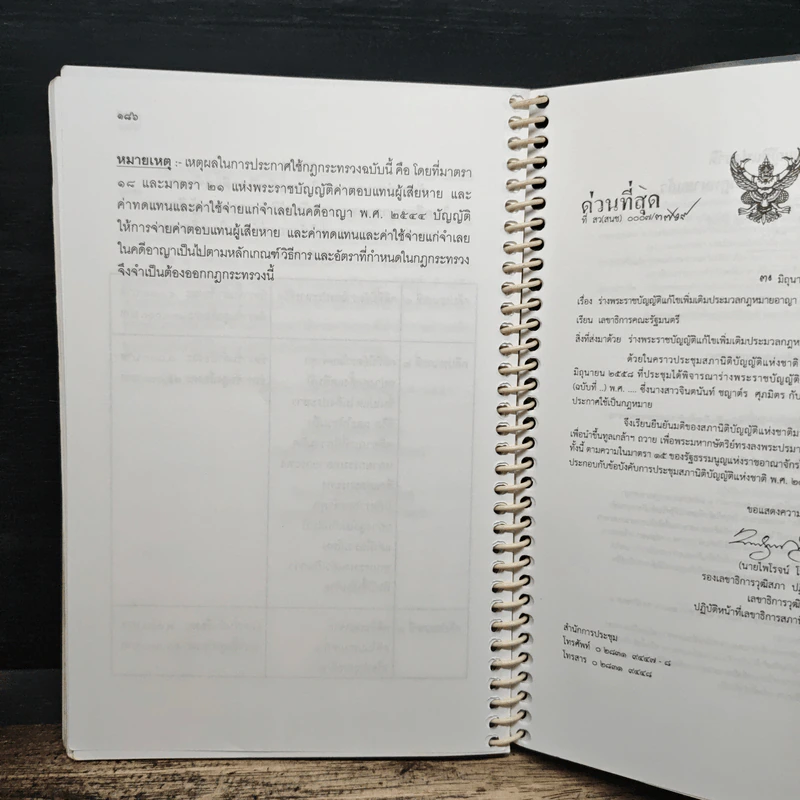 ๑๘๖
หมายเหตุ :- เหตุผลในการประกาศใช้กฎกระทรวงฉบับนี้ คือ โดยที่มาตรา
๑๘ และมาตรา ๒๑ แห่งพระราชบัญญัติค่าตอบแทนผู้เสียหาย และ
ค่าทดแทนและค่าใช้จ่ายแก่จำเลยในคดีอาญา พ.ศ. ๒๕๔๔ บัญญัติ
ให้การจ่ายค่าตอบแทนผู้เสียหาย และค่าทดแทนและค่าใช้จ่ายแก่จำเลย
ในคดีอาญาเป็นไปตามหลักเกณฑ์ วิธีการ และอัตราที่กำหนดในกฎกระทรวง
จึงจำเป็นต้องออกกฎกระทรวงนี้
ด่วนที่สุด
ที่ สว(สนช) ๐๐๐๗/
มิถุนา
เรื่อง ร่างพระราชบัญญัติแก้ไขเพิ่มเติมประมวลกฎหมายอาญา
เรียน เลขาธิการคณะรัฐมนตรี
สิ่งที่ส่งมาด้วย ร่างพระราชบัญญัติแก้ไขเพิ่มเติมประมวลกฎห
ด้วยในคราวประชุมสภานิติบัญญัติแห่งชาติ
มิถุนายน ๒๕๕๘ ที่ประชุมได้พิจารณาร่างพระราชบัญญัติ
(ฉบับที่ ..) พ.ศ. .... ซึ่งนางสาวจินตนันท์ ชญาต์ร ศุภมิตร กับ
ประกาศใช้เป็นกฎหมาย
จึงเรียนยืนยันมติของสภานิติบัญญัติแห่งชาติม
เพื่อนำขึ้นทูลเกล้าฯ ถวาย เพื่อพระมหากษัตริย์ทรงลงพระปรมา
ทั้งนี้ ตามความในมาตรา ๑๕ ของรัฐธรรมนูญแห่งราชอาณาจักร
ประกอบกับข้อบังคับการประชุมสภานิติบัญญัติแห่งชาติ พ.ศ.
ขอแสดงความ
(นายไพโรจน์ โ
รองเลขาธิการวุฒิสภา ป
เลขาธิการวุฒิ
ปฏิบัติหน้าที่เลขาธิการสภา
สำนักการประชุม
โทรศัพท์ ๐ ๒๘๓๑ ๙๔๔๗ - ๘
โทรสาร ๐ ๒๘๓๑ ๙๔๔๘